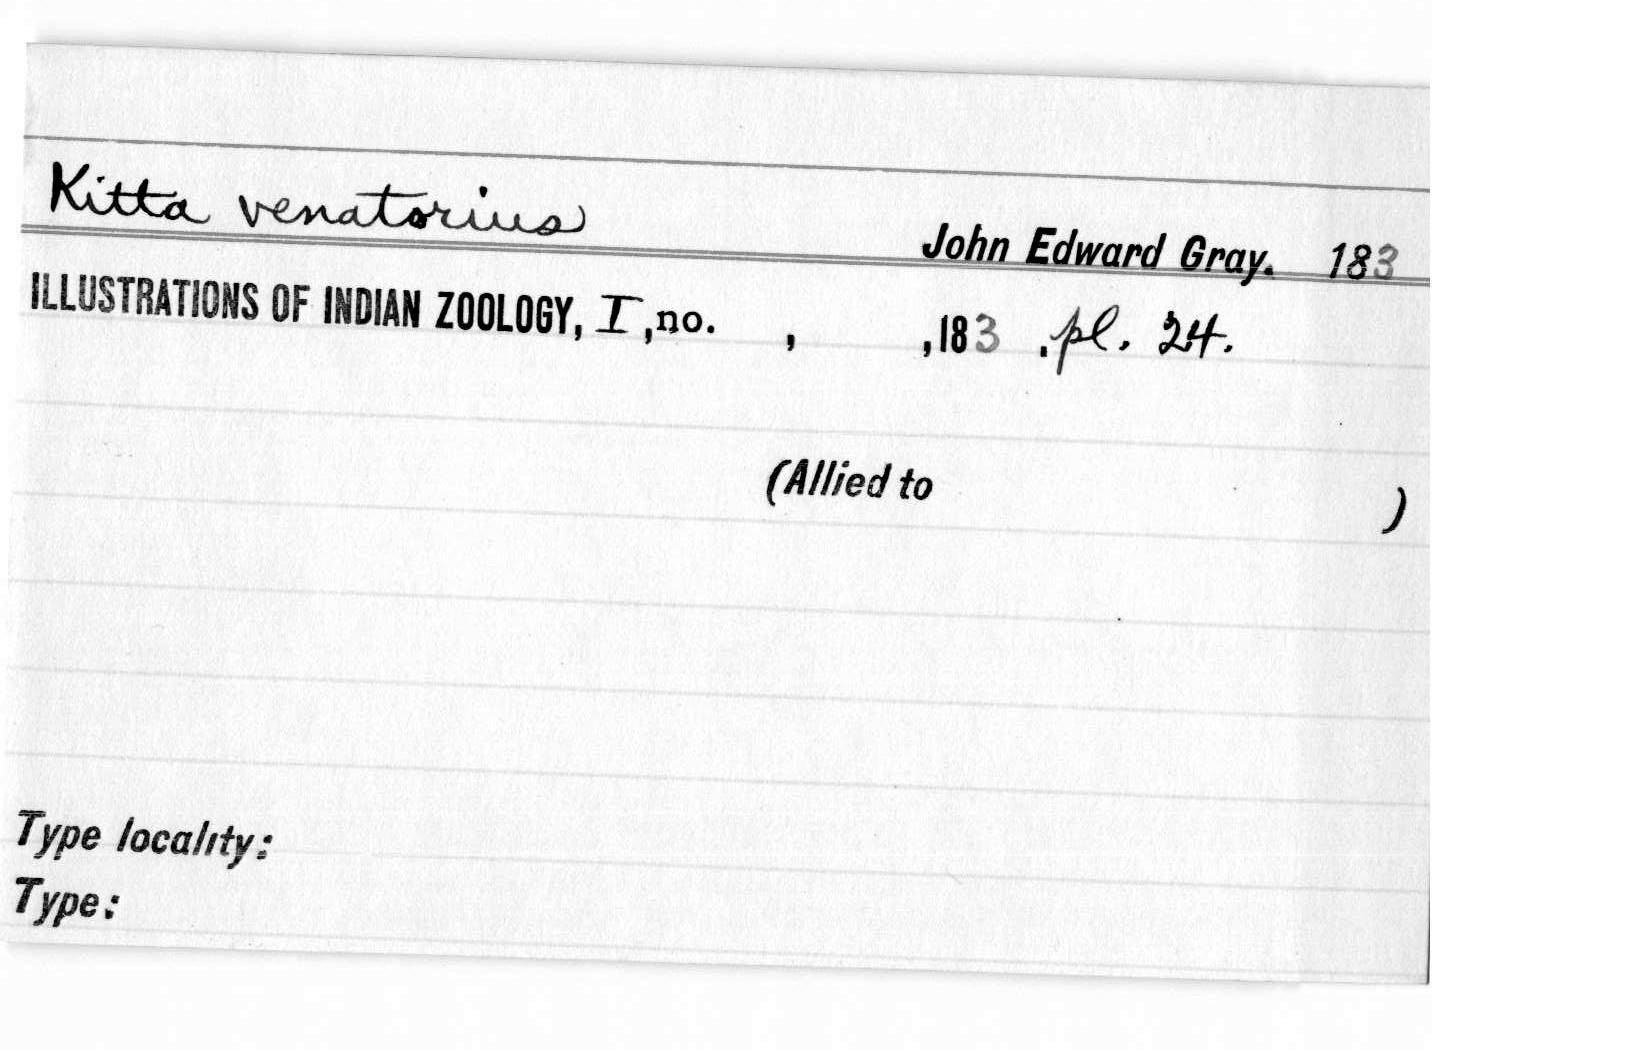 Kitta venatorius
John Edward Gray. 183
ILLUSTRATIONS OF INDIAN ZOOLOGY, I ,no. , ,183 , pl. 24.
(Allied to )
Type locality:
Type: